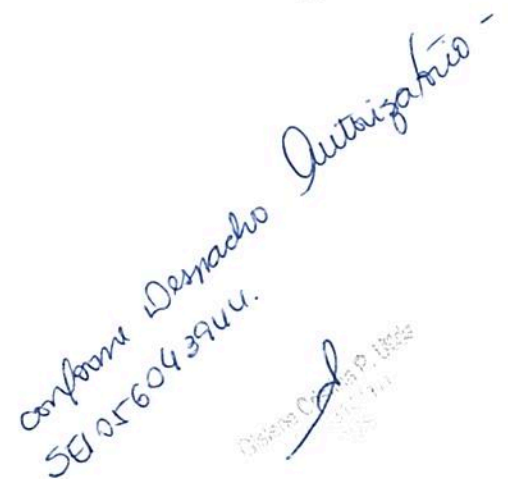 conforme Despacho Autorizatório -
SEI 056043944.